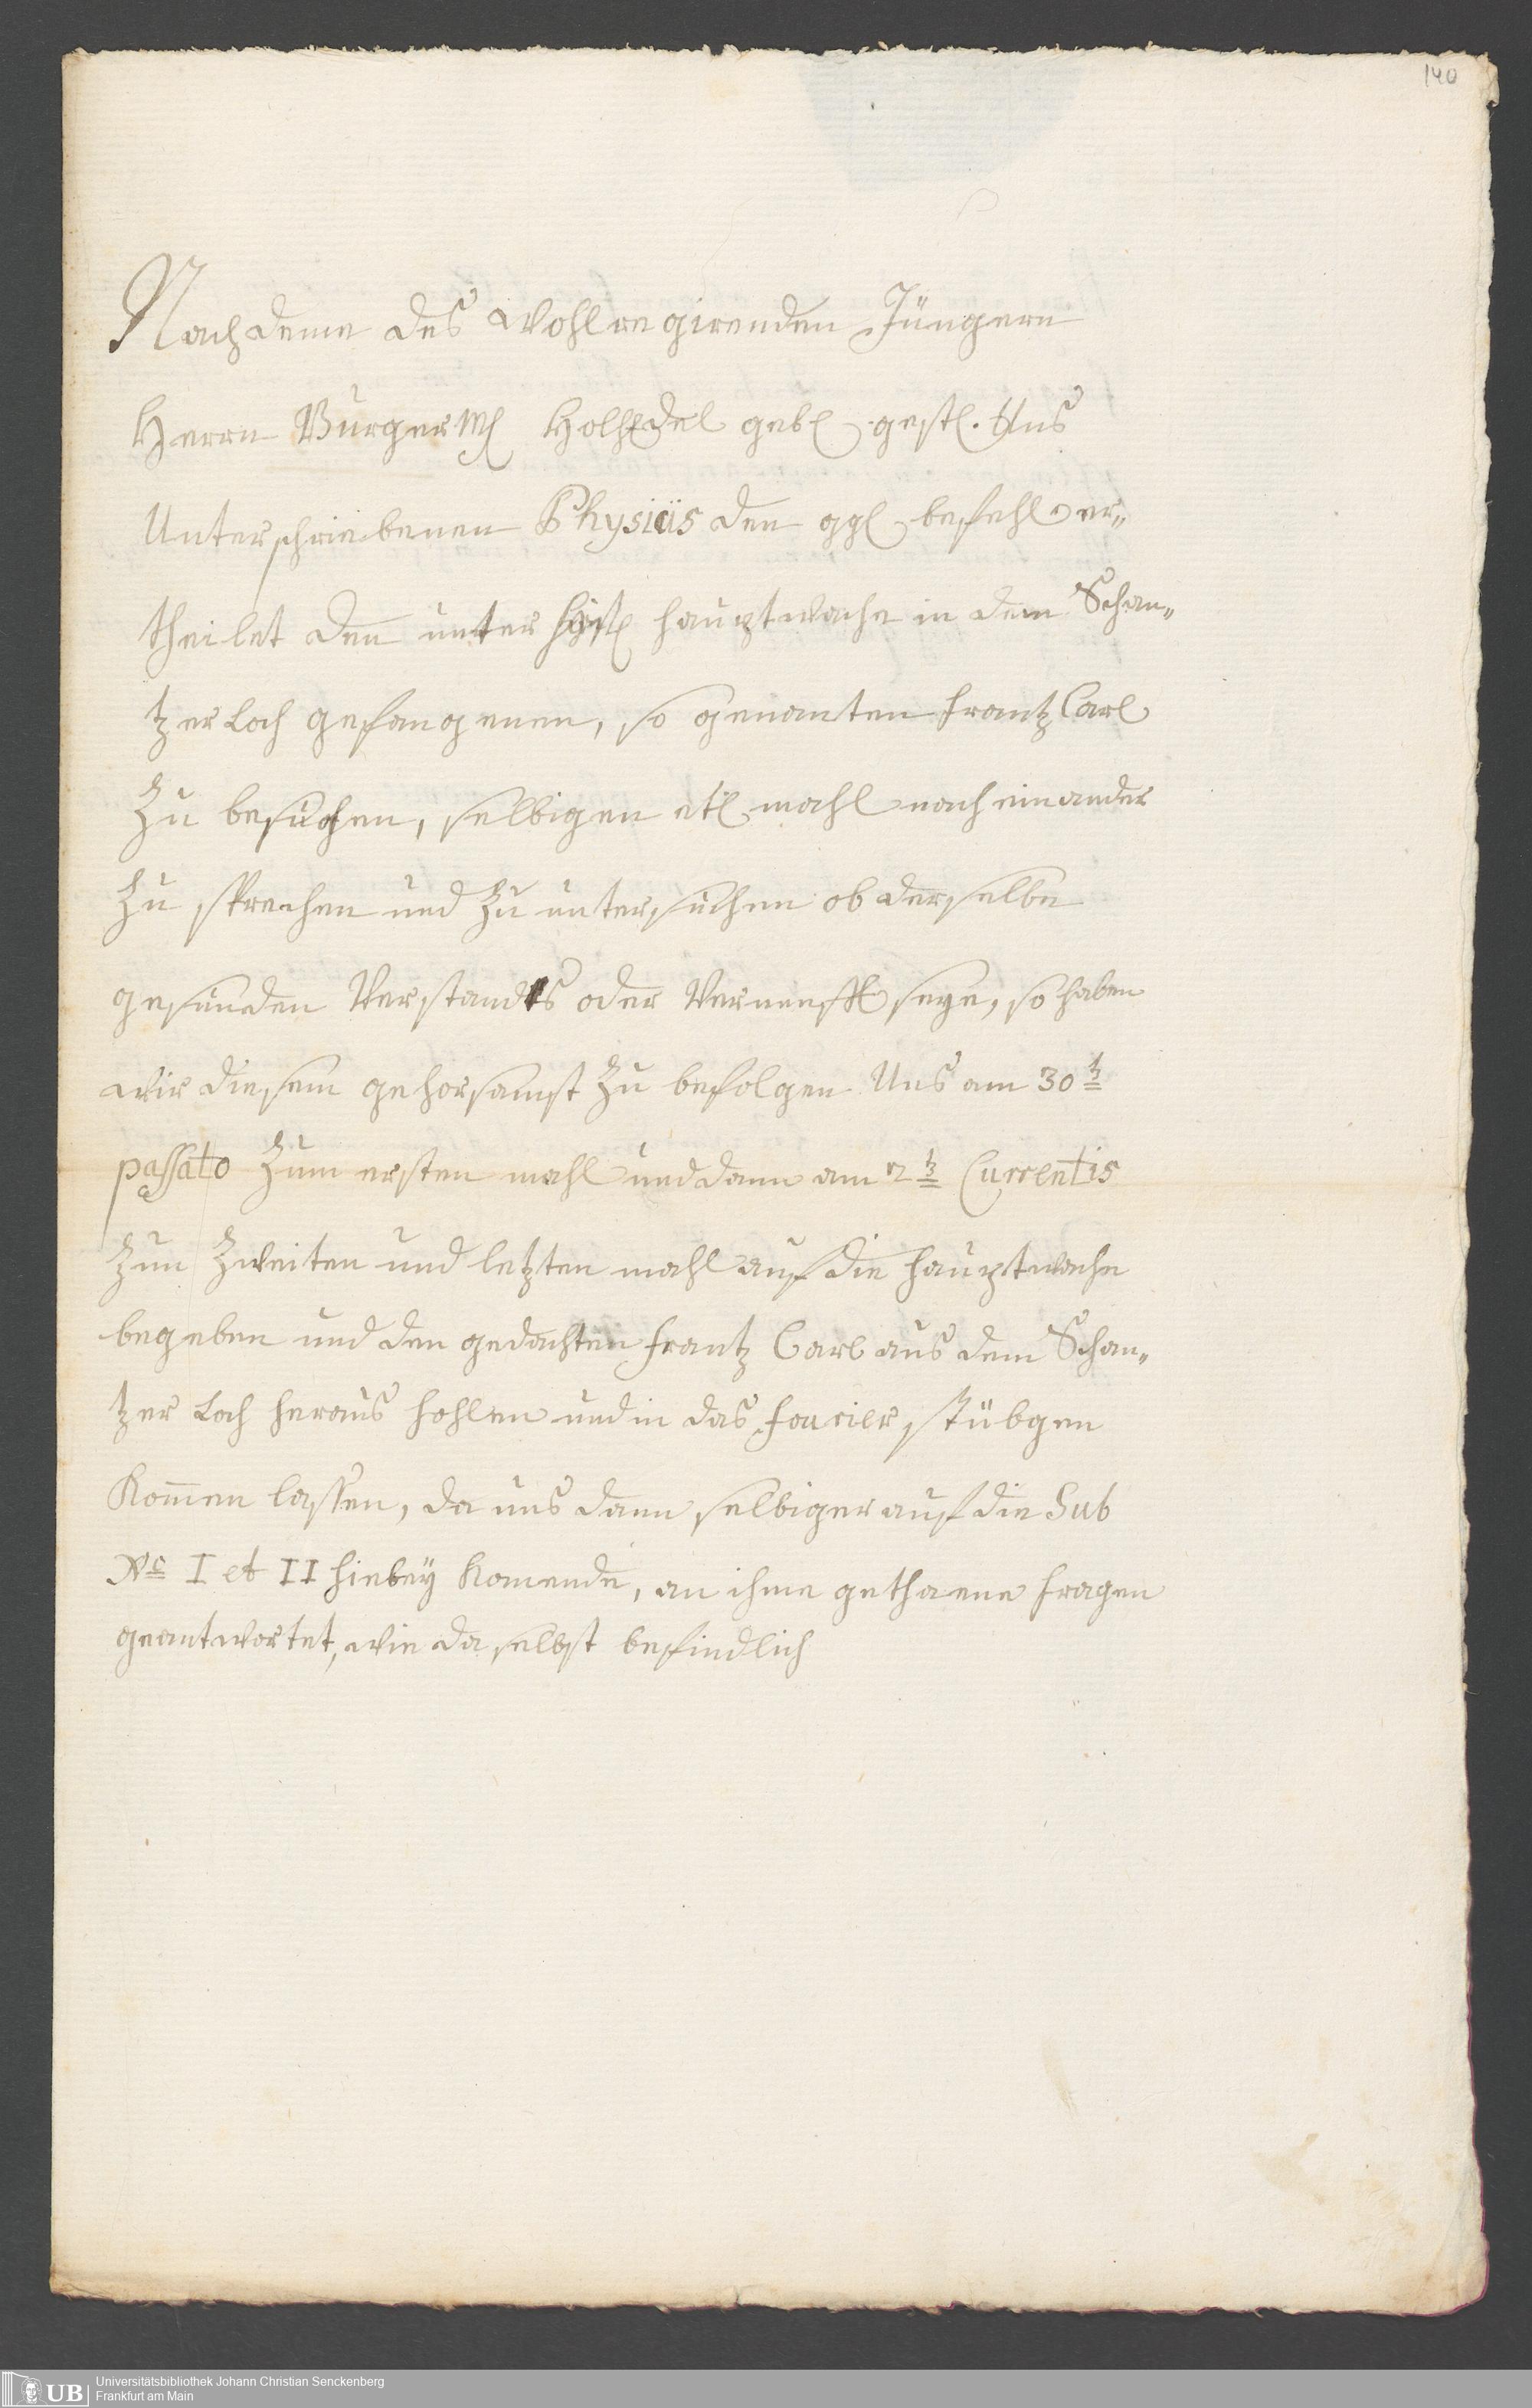 140
Nachdeme des Wohlregirenden Jüngern
Herrn Burger M. geb. gestl. Uns
Unterschriebenen Physicis den ggl. befehl er„
theilet den unter hauptwache in dem Schan„
tzer Loch gefangenen, so genanten Frantz Carl
Zu besuchen, selbigen etl. mahl nach einander
Zu sprechen und Zu untersuchen ob derselbe
gesunden Verstandes oder Vernunfft seye, so haben
wir diesem gehorsamst Zu befolgen Uns am 30t
passato Zum ersten mahl und dann am 2t Currentis
Zum Zweiten und letzten mahl auf die Hauptwache
begeben und den gedachten Frantz Carl aus dem Schan„
tzer Loch heraus hohlen und in das Fourier stübgen
Kommen lassen, da uns dann selbiger auf die Sub
No I et II hiebey Komende, an ihme gethaene Fragen
geantwortet, wie daselbst befindlich
UB Universitätsbibliothek Johann Christian Senckenberg
Frankfurt am Main